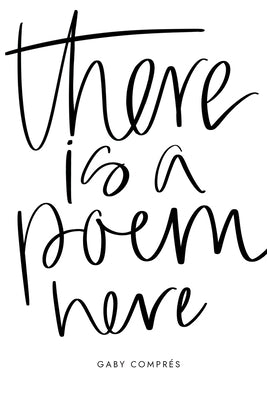 there
is a
poem
here
GABY COMPRÉS